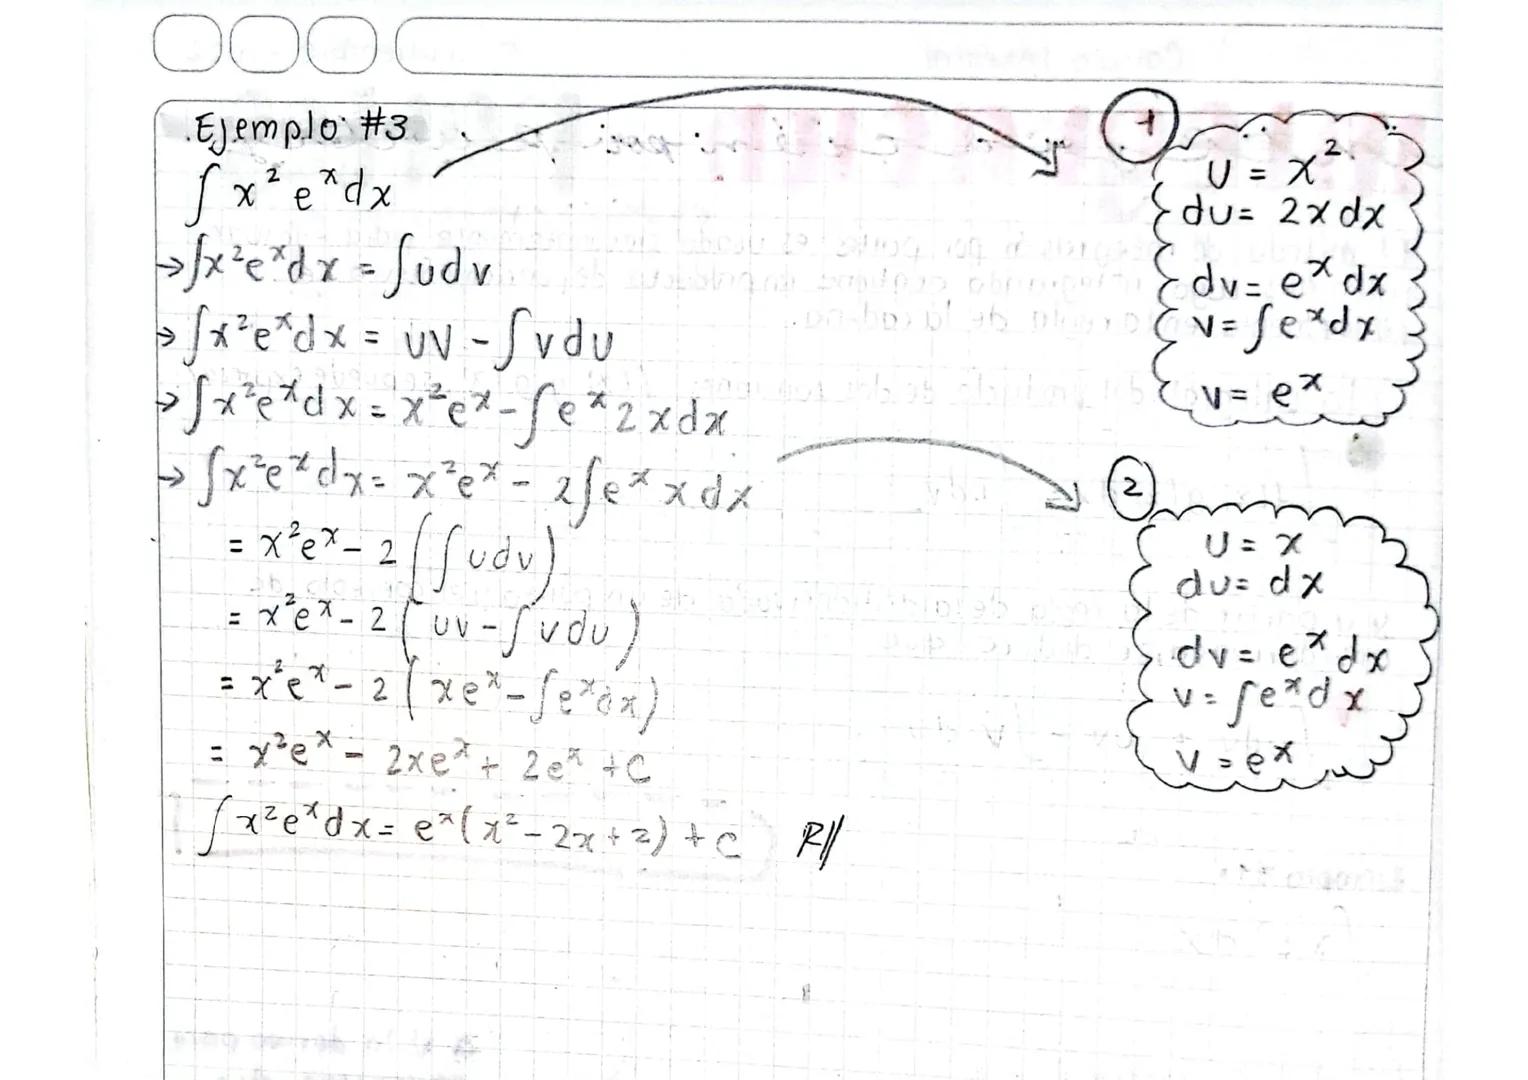 Ejemplo #3
∫ x² eˣ dx
→ ∫x²eˣdx = ∫udv
→ ∫x²eˣdx = uv - ∫vdu
→ ∫x²eˣdx = x²eˣ - ∫eˣ2xdx
→ ∫x²eˣdx = x²eˣ - 2∫eˣ x dx
= x²eˣ - 2(∫udv)
= x²eˣ - 2(uv - ∫vdu)
= x²eˣ - 2(xeˣ - ∫eˣdx)
= x²eˣ - 2xeˣ + 2eˣ + C
∫x²eˣdx = eˣ(x² - 2x + 2) + C R//
1
U = x²
du = 2x dx
dv = eˣ dx
v = ∫eˣdx
v = eˣ
2
U = x
du = dx
dv = eˣ dx
v = ∫eˣdx
v = eˣ